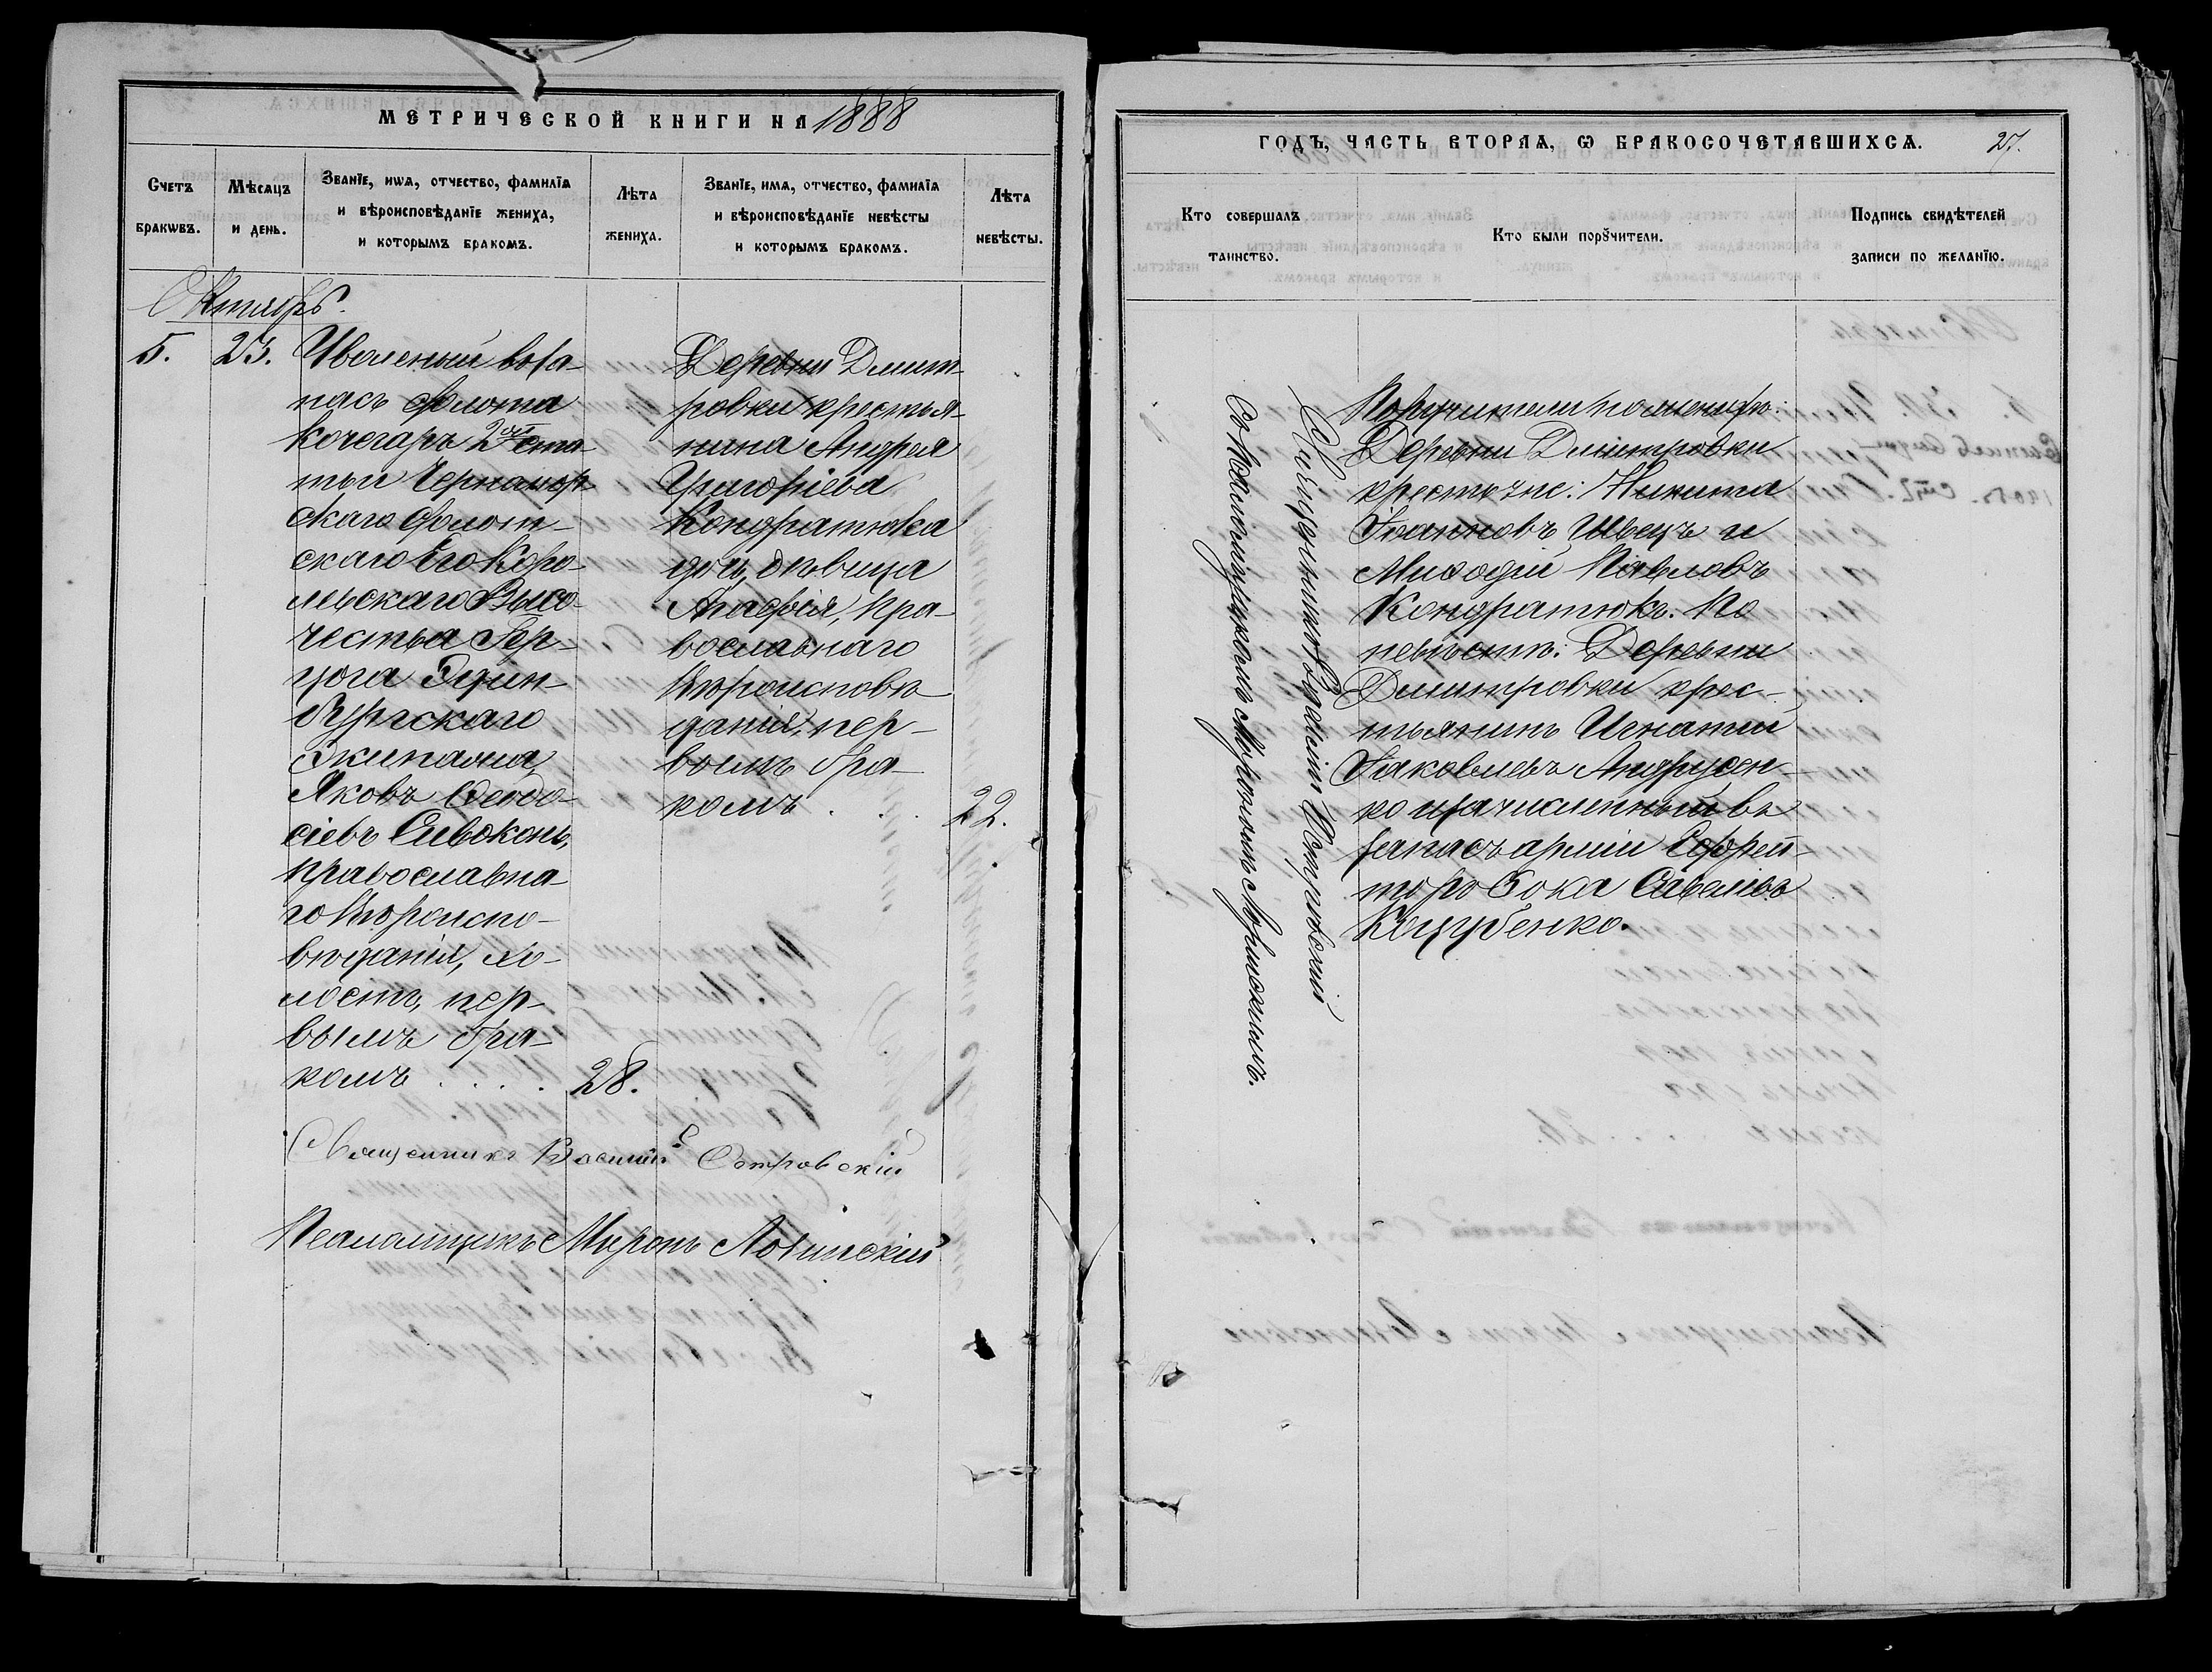 МЕТРИЧЕСКОЙ КНИГИ НА 1888
Счетъ браковъ.
Мѣсяцъ и день.
Званіе, имя, отчество, фамилія и вѣроисповѣданіе жениха, и которымъ бракомъ.
Лѣта жениха.
Званіе, имя, отчество, фамилія и вѣроисповѣданіе невѣсты и которымъ бракомъ.
Лѣта невѣсты.
Октябрь.
5.
23.
Уволеный въ за-
пасъ флота
кочегаръ 2ой ста-
тьи Черномор-
скаго флот-
скаго Его Коро-
левскаго Высо-
чества Гер-
цога Эдин-
бургскаго
Экипажа,
Яковъ Ѳеодо-
сіевъ Сивоконь,
православна-
го вѣроиспо-
вѣданія, хо-
лостъ, пер-
вымъ бра-
комъ . . . .
28.
Деревни Дмит-
ровки крестья-
нина Андрея
Григоріева
Кондратюка
дочь, дѣвица
Агафія, пра-
вославнаго
вѣроисповѣ-
данія, пер-
вымъ бра-
комъ . . .
22.
Священникъ Василій Петровскій
Псаломщикъ Миронъ Логинскій
ГОДЪ, ЧАСТЬ ВТОРАЯ, Ѡ БРАКОСОЧЕТАВШИХСЯ.
27.
Кто совершалъ таинство.
Кто были поручители.
Подпись свидѣтелей записи по желанію.
Священникъ Василій Петровскій
съ псаломщикомъ Мирономъ Логинскимъ.
Поручители по женихѣ:
Деревни Дмитровки
крестьяне: Никита
Іоанновъ Швецъ и
Миѳодій Павловъ
Кондратюкъ. По
невѣстѣ: Деревни
Дмитровки крес-
тьянинъ Игнатій
Іаковлевъ Андрусен-
ко и зачисленный въ
запасъ арміи Ефрей-
торъ Ѳока Савеліевъ
Коцубенко.